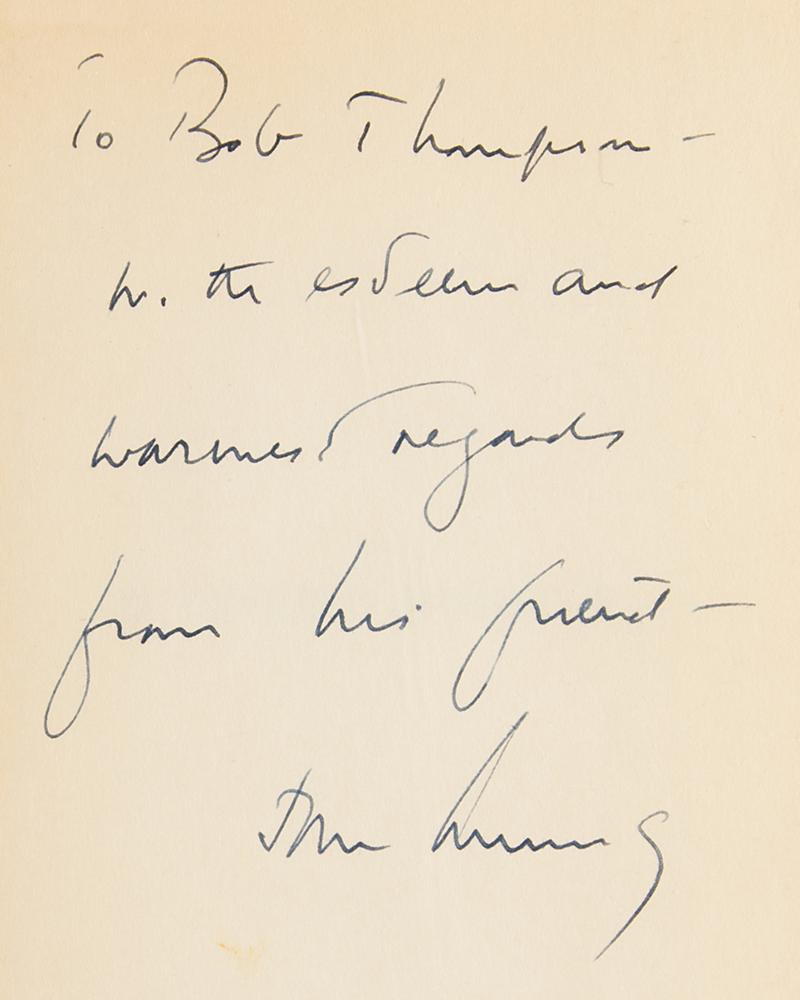 To Bob Thompson -
with esteem and
warmest regards
from his friend -
John Kennedy